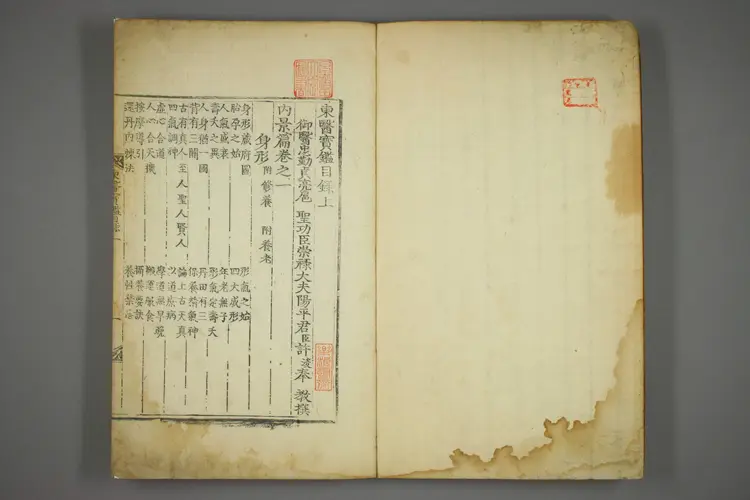 東醫寶鑑目錄上
御醫忠勤貞亮扈 聖功臣崇祿大夫陽平君臣許浚奉 教撰
內景篇卷之一
身形 附修養 附養老
身形藏府圖 形氣之始
胎孕之始 四大成形
人氣盛衰 年老無子
壽夭之異 形氣定壽夭
人身猶一國 丹田有三
背有三關 保養精氣神
古有眞人至人聖人賢人 論上古天眞
四氣調神 以道療病
虛心合道 學道無早晚
人心合天機 搬運服食
按摩導引 攝養要訣
還丹內煉法 養性禁忌